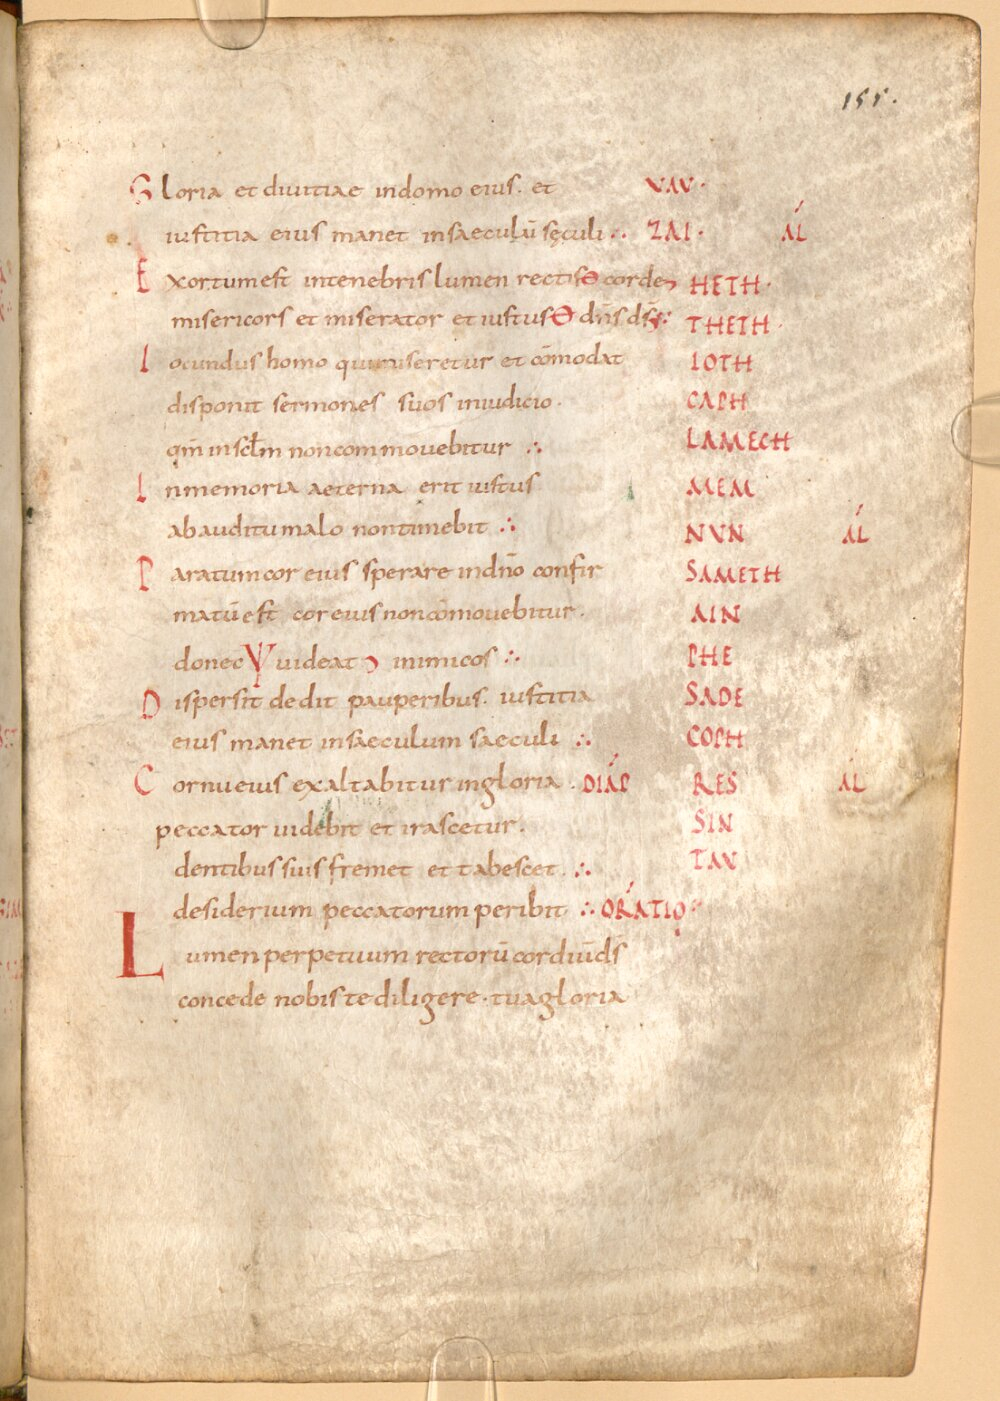 155.
Gloria et divitiae indomo eius. et VAV.
iustitia eius manet insaeculū sęculi ∴ ZAI. AL
Exortum est intenebris lumen rectis corde HETH.
misericors et miserator et iustus dn̄s ds̄ ∴ THETH.
Iocundus homo qui miseretur et cōmodat IOTH
disponit sermones suos iniudicio. CAPH
qm̄ insctm noncommovebitur ∴ LAMECH
Inmemoria aeterna erit iustus MEM
abauditu malo nontimebit ∴ NVN AL
Paratum cor eius sperare indn̄o confir SAMETH
matū est cor eius noncōmovebitur. AIN
donec videat inimicos ∴ PHE
Dispersit dedit pauperibus. iustitia SADE
eius manet insaeculum saeculi ∴ COPH
Cornu eius exaltabitur ingloria. DIAP RES AL
peccator videbit et irascetur. SIN
dentibus suis fremet et tabescet. ∴ TAV
desiderium peccatorum peribit ∴ ORATIO
Lumen perpetuum rectorū cordiūds̄
concede nobis te diligere. tua gloria